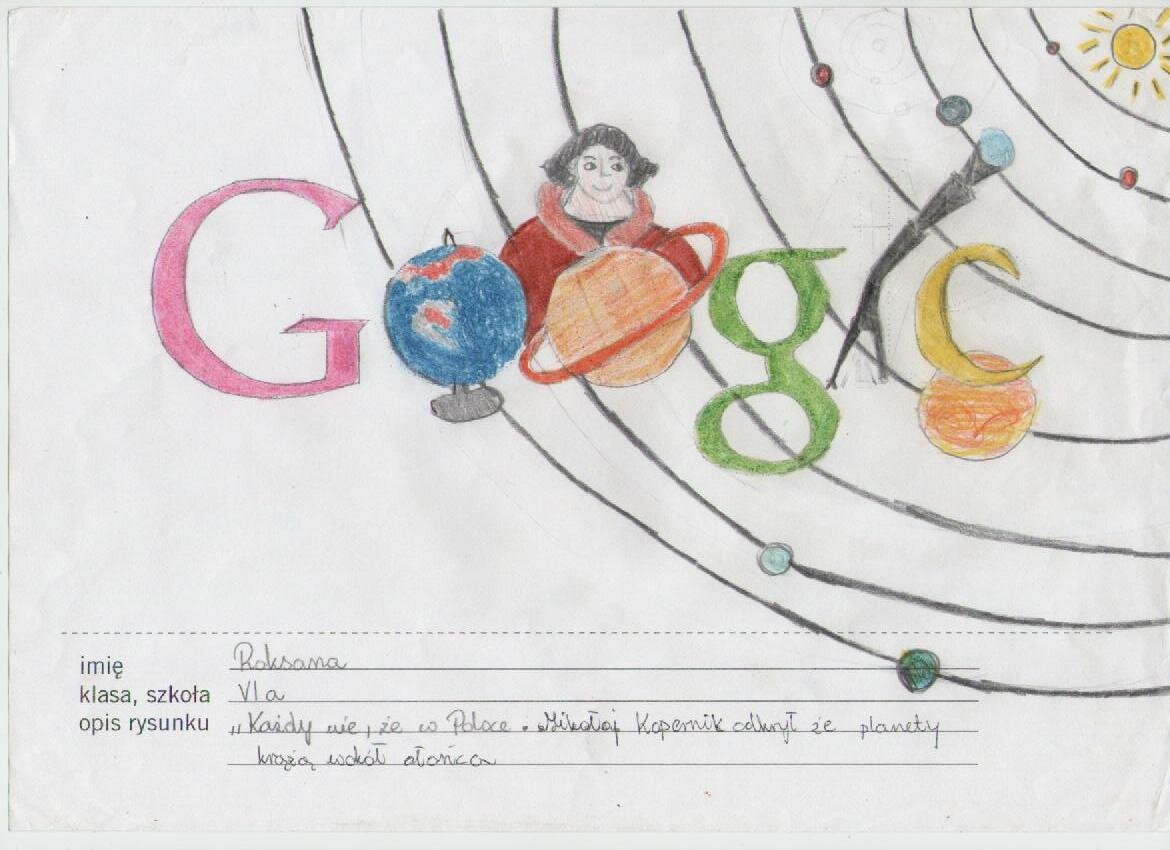 Google
imię Roksana
klasa, szkoła VI a
opis rysunku „Każdy wie, że w Polsce. Mikołaj Kopernik odkrył że planety
krążą wokół słońca